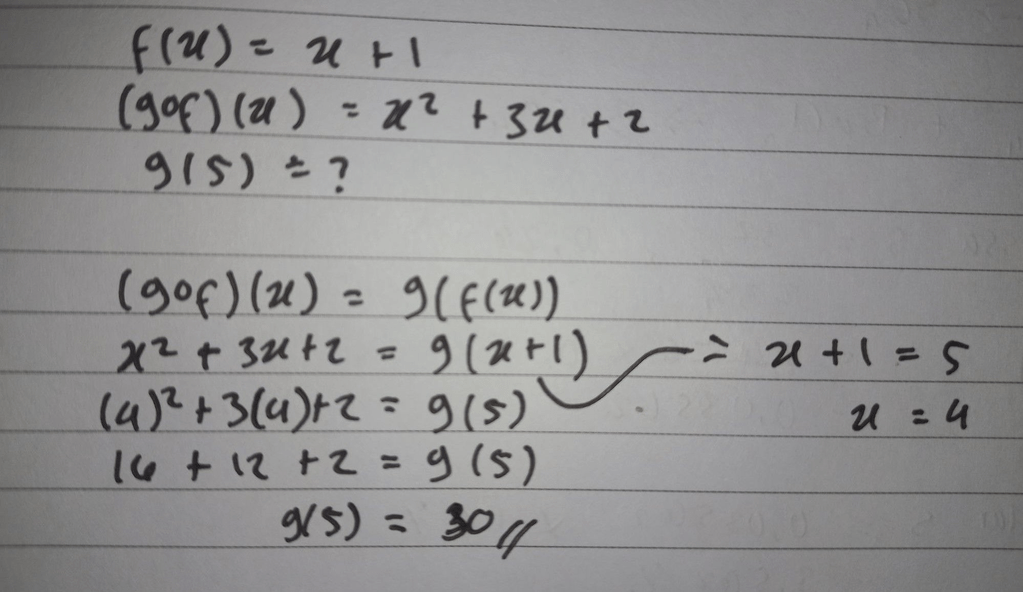 f(x) = x + 1
(gof)(x) = x² + 3x + 2
g(5) = ?
(gof)(x) = g(f(x))
x² + 3x + 2 = g(x+1) = x + 1 = 5
(4)² + 3(4) + 2 = g(5) x = 4
16 + 12 + 2 = g(5)
g(5) = 30 //